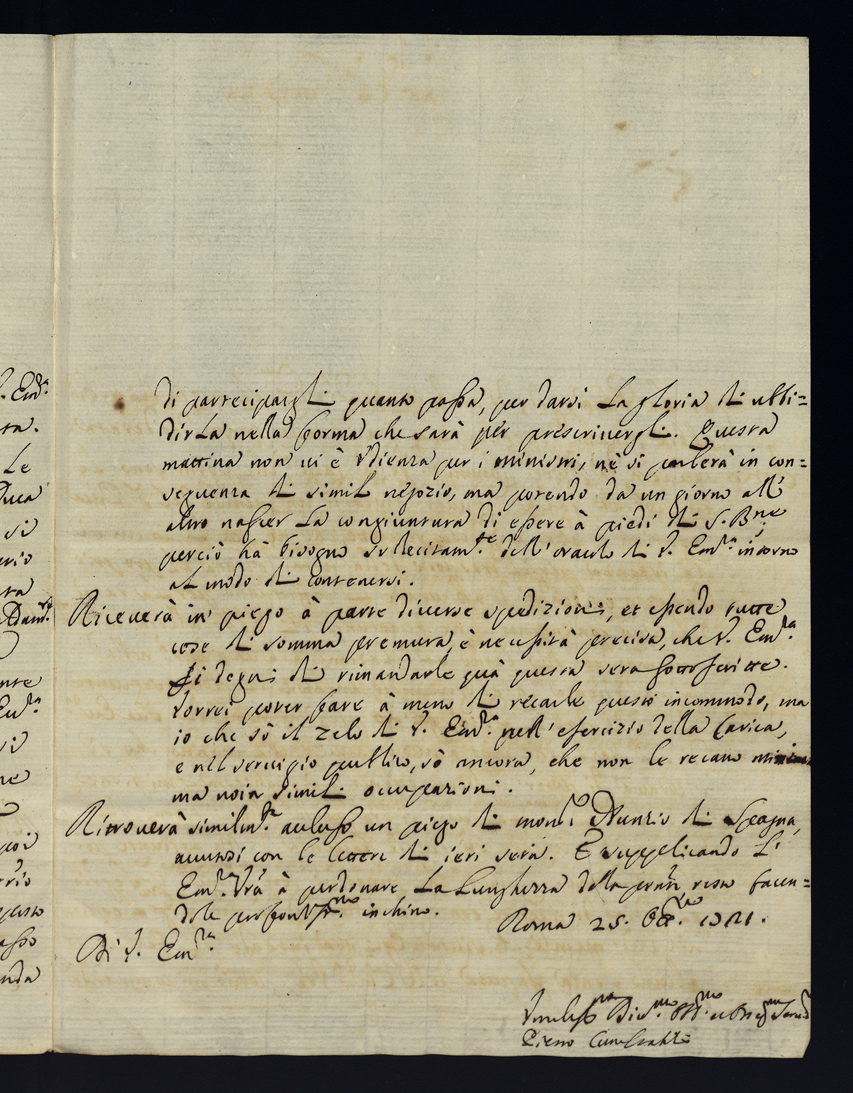 di partecipargli quanto passa, per darsi la gloria di ubbi=
dirla nella forma che sarà per prescrivergli. Questa
mattina non vi è Udienza per i ministri, ne si parlerà in con=
seguenza di simil negozio, ma potendo da un giorno all'
altro nascer la congiuntura di essere à piedi di S. Bne
perciò hà bisogno sollecitamte dell'oracolo di V. Emza intorno
al modo di contenersi.
Riceverà in piego à parte diverse spedizioni, et essendo tutte
cose di somma premura, è necessità precisa, che V. Emza
si degni di rimandarle quà questa sera sottoscritte.
Vorrei poter fare à meno di recarle questo incommodo, ma
io che sò il zelo di V. Emza nell'esercizio della Carica,
e nel servigio publico, sò ancora, che non le recano
ma noia simili occupazioni.
Ritroverà similmte accluso un piego di monsr Nunzio di Spagna,
con le lettere di ieri sera. E supplicando l'
Emza Vra à perdonare la lunghezza della presente resto facen=
dole profondmo inchino.
Roma 25. Ottre
Di V. Emza
Umilissmo Divmo Obbmo
Pietro